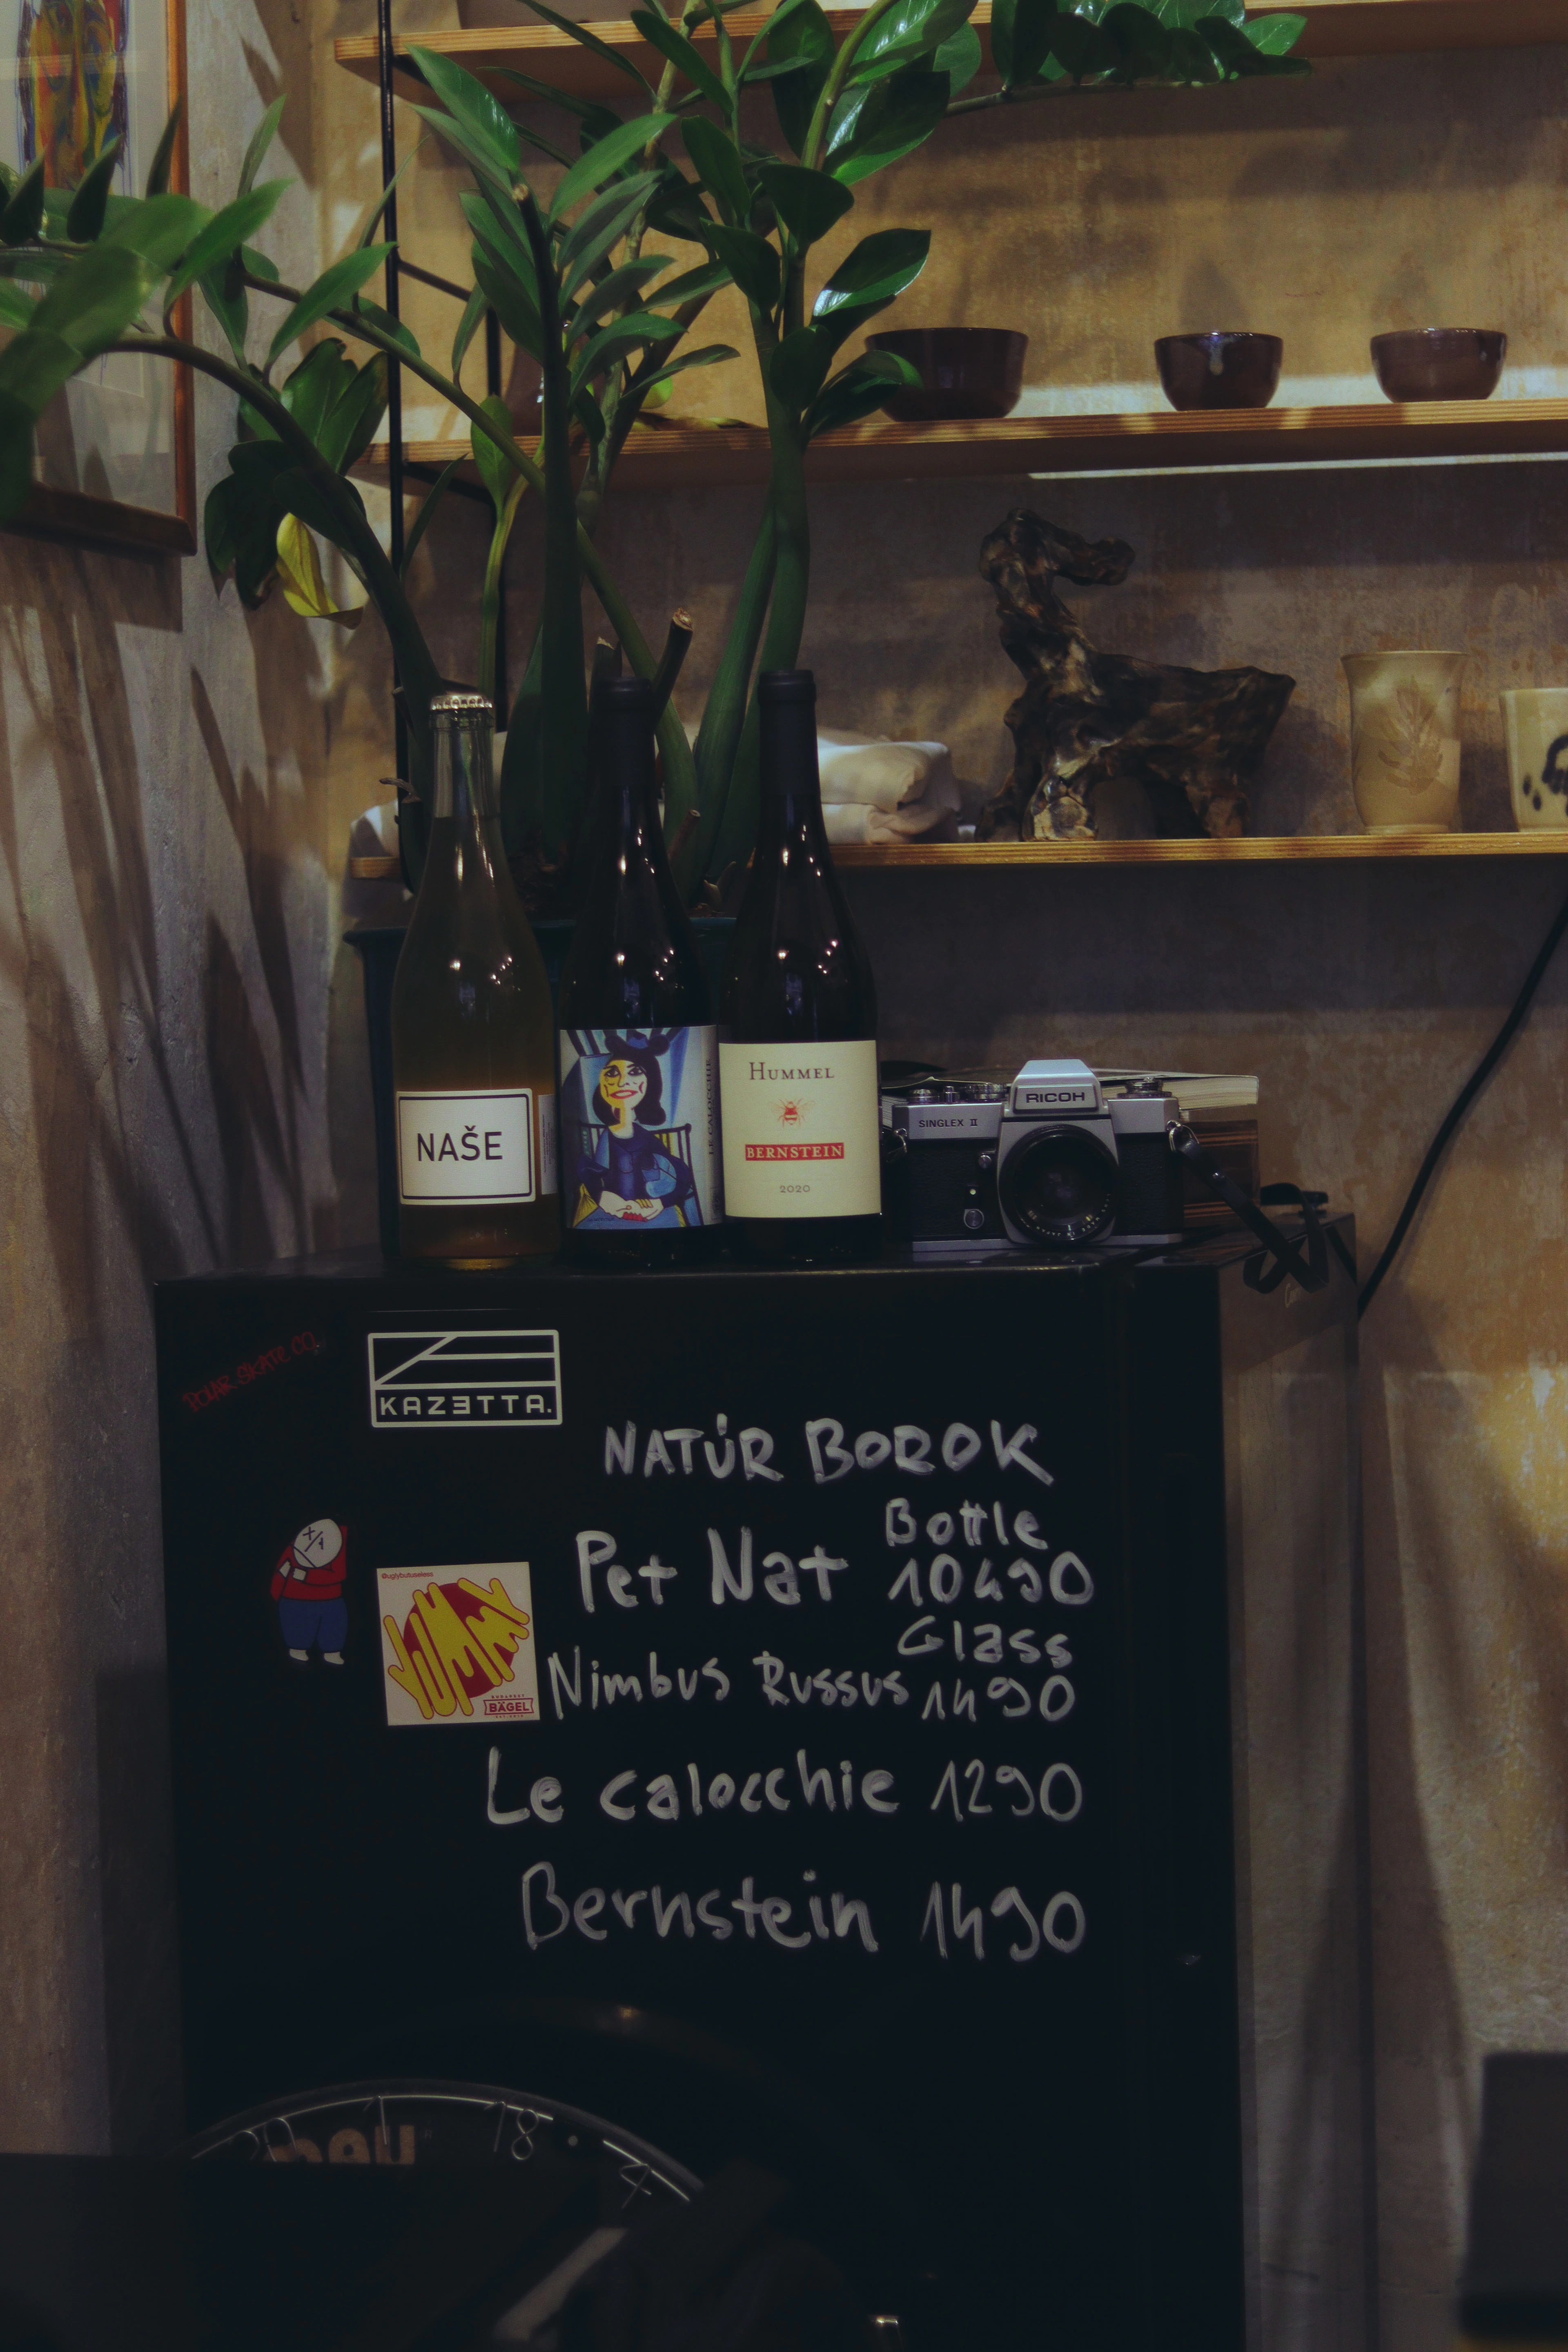 NAŠE
LE CALOCCHIE
HUMMEL
BERNSTEIN
2020
RICOH
SINGLEX II
POLAR SKATE CO.
KAZETTA.
NATÚR BOROK
Bottle
Pet Nat 10490
Glass
Nimbus Russus 1490
Le calocchie 1290
Bernstein 1490
@uglybutuseless
YUMMY
BUDAPEST
BÄGEL